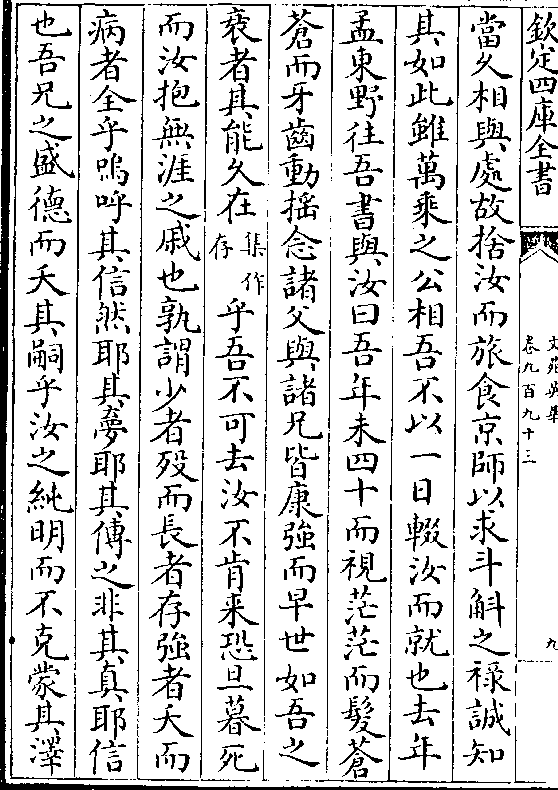 欽定四庫全書
文苑英華
卷九百九十三
九
當久相與處故捨汝而旅食京師以求斗斛之祿誠知
其如此雖萬乘之公相吾不以一日輟汝而就也去年
孟東野往吾書與汝曰吾年未四十而視茫茫而髮蒼
蒼而牙齒動揺念諸父與諸兄皆康強而早世如吾之
衰者其能久在集作存乎吾不可去汝不肯来恐旦暮死
而汝抱無涯之戚也孰謂少者殁而長者存強者夭而
病者全乎嗚呼其信然耶其夢耶其傳之非其真耶信
也吾兄之盛德而夭其嗣乎汝之純明而不克蒙其澤